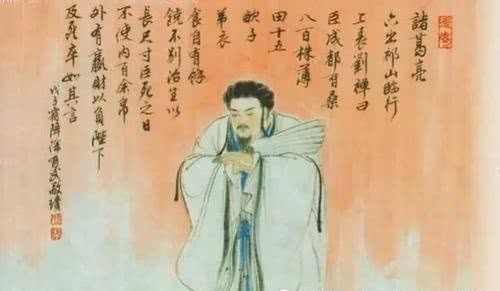 諸葛亮
六出祁山臨行
上表劉禪曰
臣成都有桑
八百株薄
田十五
畝子
弟衣
食自有餘
饒不別治生以
長尺寸臣死之日
不使內有余帛
外有贏財以負陛下
及死卒如其言
戊子